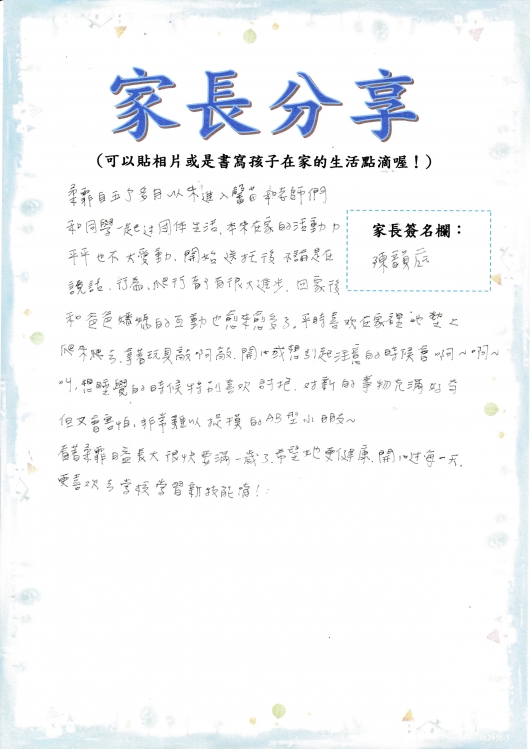 家長分享
(可以貼相片或是書寫孩子在家的生活點滴喔！)
柔霏自五個多月以來進入馨苗和老師們
和同學一起过团体生活，本來在家的活動力
家長簽名欄：
平平也不太愛動，開始送托後不論是在
陳韻辰
說話、行為、爬行都有很大進步，回家後
和爸爸媽媽的互動也愈來愈多了，平時喜欢在家裡地墊上
爬來爬去，拿著玩具敲啊敲，開心或想引起注意的時候會啊～啊～
叫，想睡覺的時候特別喜欢討抱，对新的事物充滿好奇
但又會害怕，非常難以捉摸的AB型小朋友～
看著柔霏日益長大很快要滿一歲了，希望她更健康、開心过每一天，
更喜欢去学校学習新技能唷！